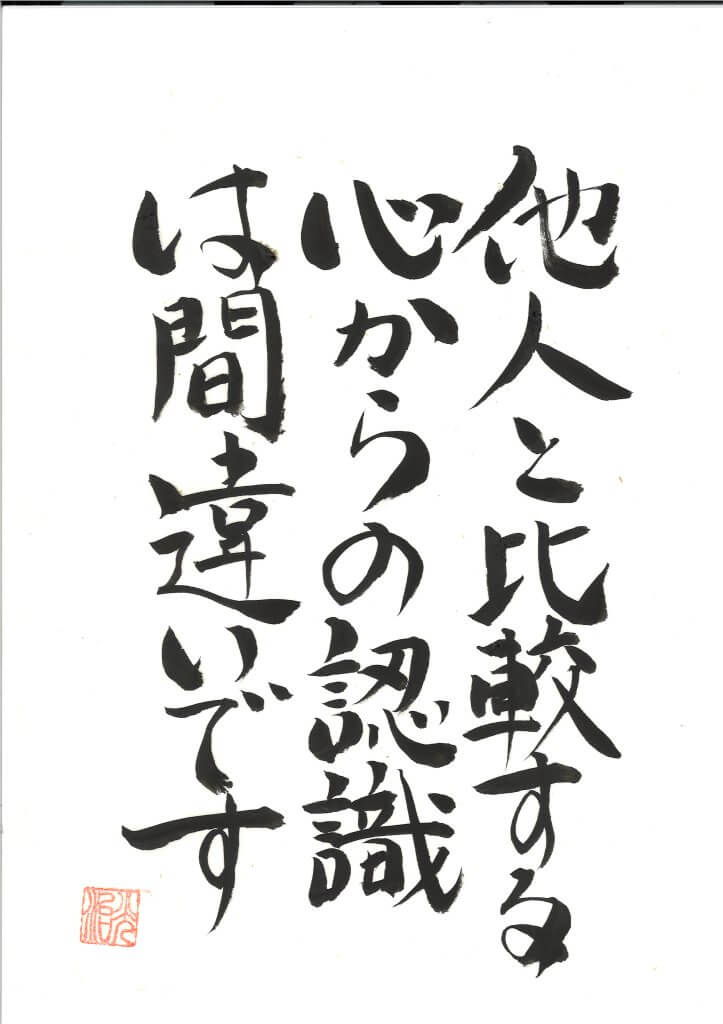 他人と比較する
心からの認識
は間違いです